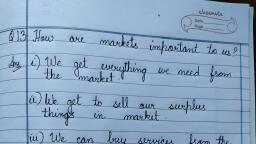 classmate
Date
Page
Q13 How are markets important to us?
Ans i) We get everything we need from
the market.
ii) We get to sell our surplus
things in market.
iii) We can buy services from the